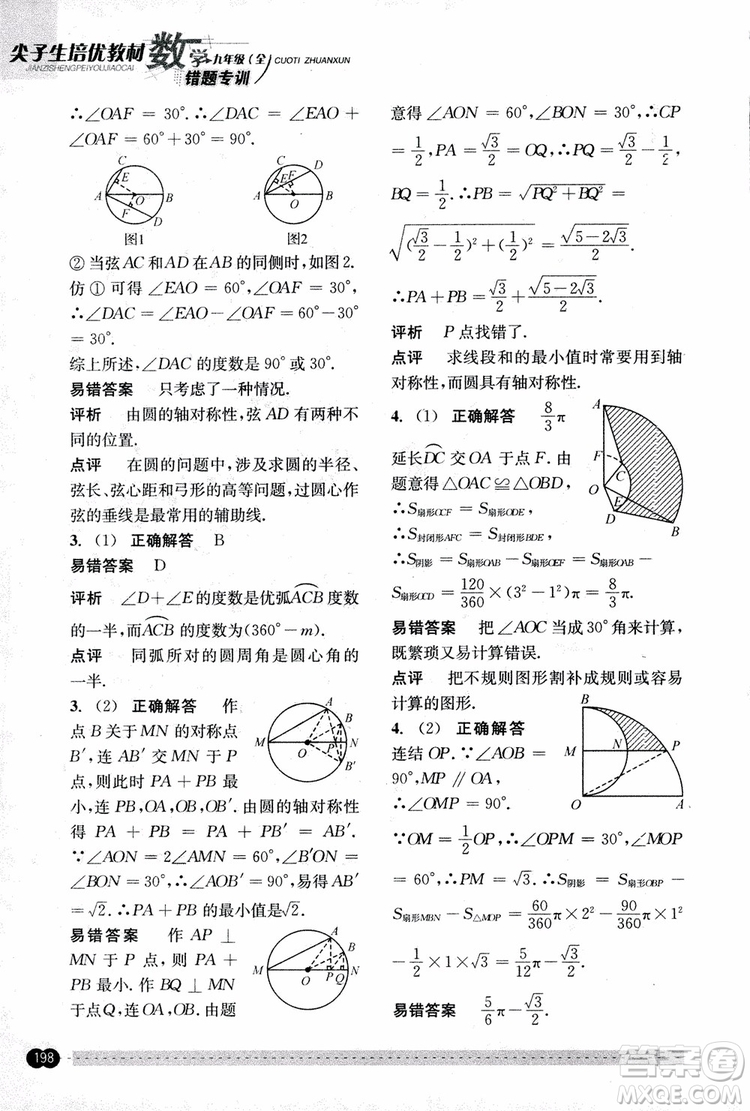 尖子生培优教材 数学九年级(全) CUOTI ZHUANXUN
JIANZISHENGPEIYOUJIAOCAI 错题专训
∴∠OAF = 30°. ∴∠DAC = ∠EAO +
∠OAF = 60°+30° = 90°.
C E A O B F D
图1
C D E F A O B
图2
② 当弦AC和AD在AB的同侧时,如图2.
仿 ① 可得 ∠EAO = 60°, ∠OAF = 30°.
∴∠DAC = ∠EAO − ∠OAF = 60° − 30°
= 30°.
综上所述,∠DAC的度数是90°或30°.
易错答案 只考虑了一种情况.
评析 由圆的轴对称性,弦AD有两种不
同的位置.
点评 在圆的问题中,涉及求圆的半径、
弦长、弦心距和弓形的高等问题,过圆心作
弦的垂线是最常用的辅助线.
3. (1) 正确解答 B
易错答案 D
评析 ∠D+∠E的度数是优弧ACB度数
的一半,而ACB的度数为(360°−m).
点评 同弧所对的圆周角是圆心角的
一半.
3. (2) 正确解答 作
点B关于MN的对称点
B′,连AB′交MN于P
点,则此时PA+PB最
小,连PB,OA,OB′. 由圆的轴对称性
得 PA + PB = PA + PB′ = AB′.
∵∠AON = 2∠AMN = 60°,∠B′ON =
∠BON = 30°,∴∠AOB′ = 90°,易得AB′
= √2. ∴PA+PB的最小值是√2.
A B M O P N B′
易错答案 作AP⊥
MN于P点,则P点为所
求. 作BQ⊥MN
于点Q,连OA,OB,由题
A B M O P Q N
意得∠AON = 60°,∠BON = 30°. ∴CP
= 1/2, PA = √3/2 = OQ, ∴PQ = √3/2 − 1/2,
BQ = 1/2. ∴PB = √(PQ²+BQ²) =
√((√3/2 − 1/2)² + (1/2)²) = √(5−2√3)/2.
∴PA+PB = √3/2 + √(5−2√3)/2.
评析 P点找错了.
点评 求线段和的最小值时常要用到轴
对称性,而圆具有轴对称性.
4. (1) 正确解答 8/3 π
延长DC交OA于点F. 由
题意得△OAC≌△OBD,
∴S扇形OCF = S扇形ODE,
∴S封闭形AFC = S封闭形BDE,
A F C O D E B
∴S阴影 = S扇形OAB − S扇形OEF = S扇形OAB −
S扇形OCD = 120/360 × (3²−1²)π = 8/3 π.
易错答案 把∠AOC当成30°角来计算,
既繁琐又易计算错误.
点评 把不规则图形割补成规则或容易
计算的图形.
4. (2) 正确解答
连结OP. ∵∠AOB =
90°, MP∥OA.
∴∠OMP = 90°.
B M N P O A
∵OM = 1/2 OP, ∴∠OPM = 30°, ∴∠MOP
= 60°, ∴PM = √3. ∴S阴影 = S扇形OBP −
S扇形MBN − S△MOP = 60/360 π×2² − 90/360 π×1²
− 1/2 ×1×√3 = 5/12 π − √3/2.
易错答案 5/6 π − √3/2
198
答案圈
MXQE.COM